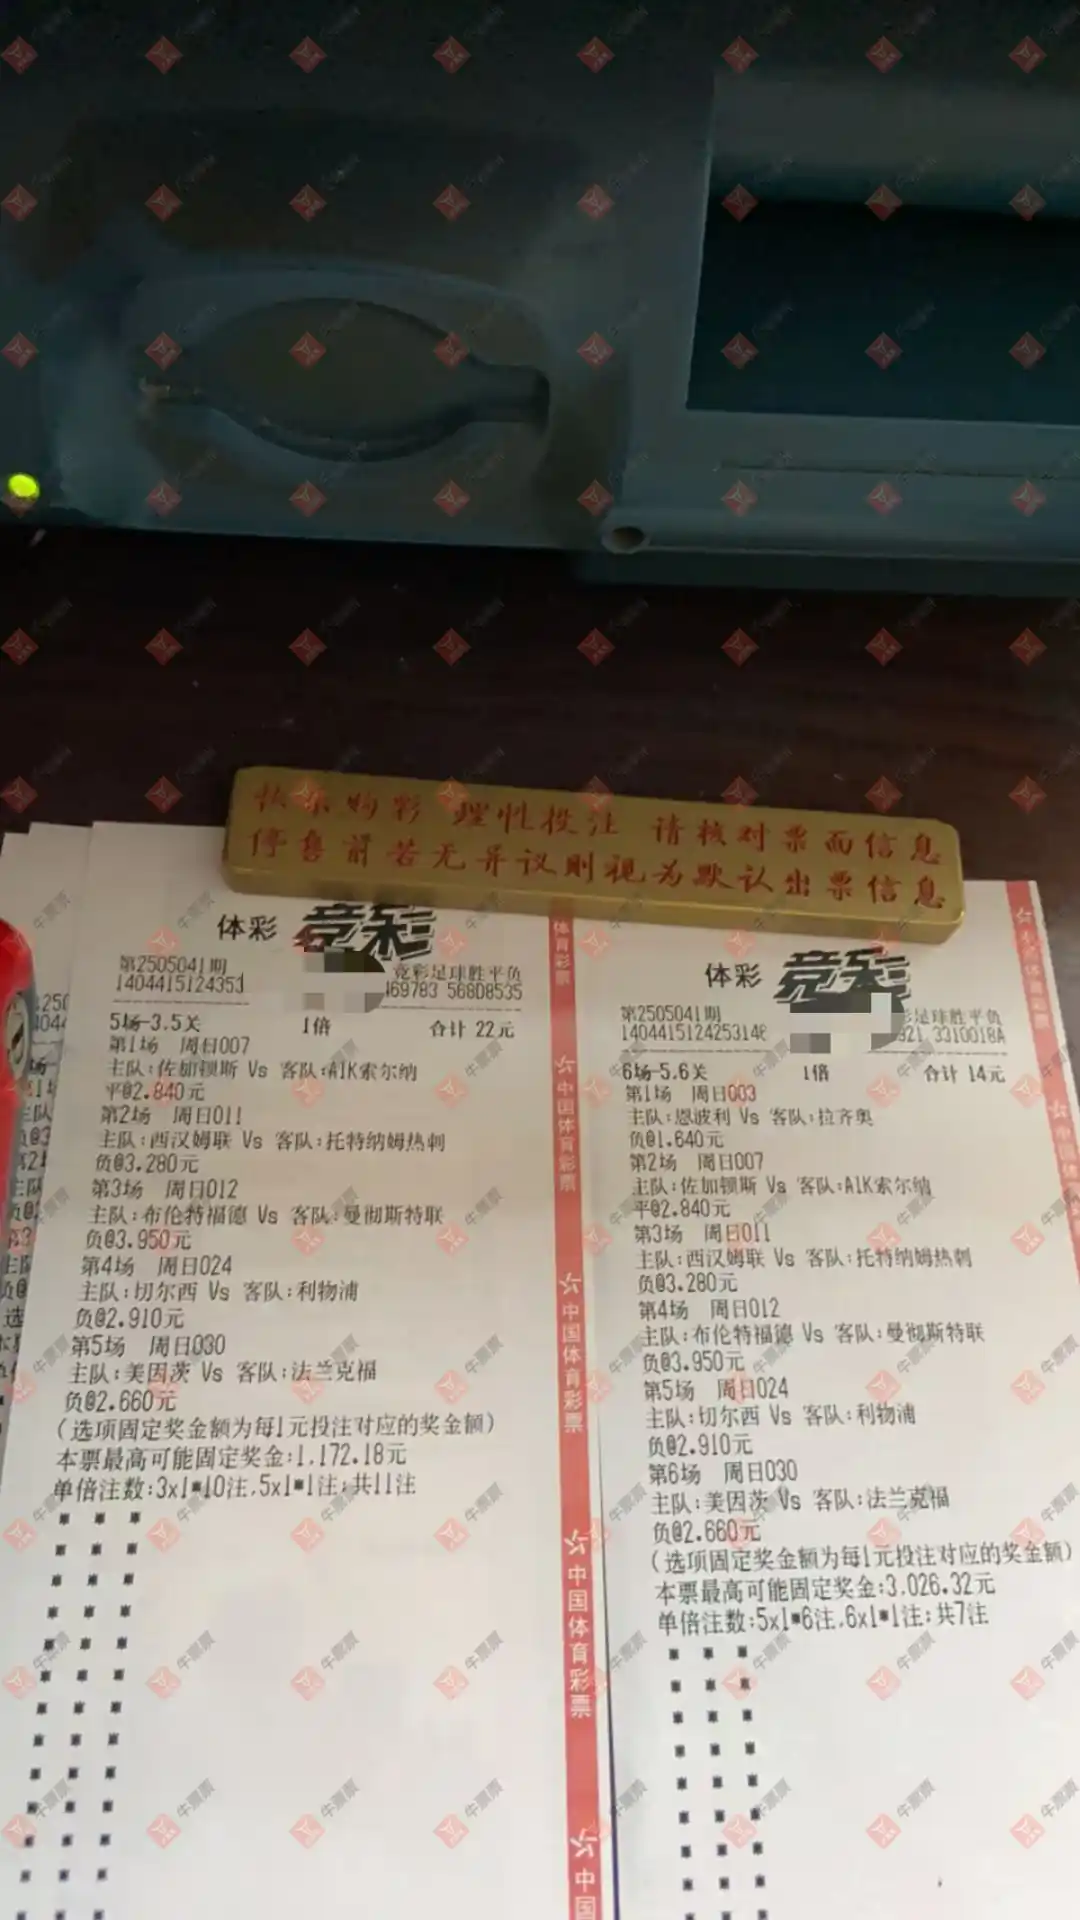 快乐购彩 理性投注 请核对票面信息
停售前若无异议则视为默认出票信息
体彩 竞彩
第2505041期
竞彩足球胜平负
1404415124353
469783 568D8535
5场-3.5关 1倍 合计 22元
第1场 周日007
主队:佐加顿斯 Vs 客队:AIK索尔纳
平@2.840元
第2场 周日011
主队:西汉姆联 Vs 客队:托特纳姆热刺
负@3.280元
第3场 周日012
主队:布伦特福德 Vs 客队:曼彻斯特联
负@3.950元
第4场 周日024
主队:切尔西 Vs 客队:利物浦
负@2.910元
第5场 周日030
主队:美因茨 Vs 客队:法兰克福
负@2.660元
(选项固定奖金额为每1元投注对应的奖金额)
本票最高可能固定奖金:1,172.18元
单倍注数:3x1*10注,5x1*1注;共11注
体育彩票
中国体育彩票
中国体育彩票
中国体育彩票
中国
体彩 竞彩
第2505041期
足球胜平负
14044151242531
921 3310018A
6场-5.6关 1倍 合计 14元
第1场 周日003
主队:恩波利 Vs 客队:拉齐奥
负@1.640元
第2场 周日007
主队:佐加顿斯 Vs 客队:AIK索尔纳
平@2.840元
第3场 周日011
主队:西汉姆联 Vs 客队:托特纳姆热刺
负@3.280元
第4场 周日012
主队:布伦特福德 Vs 客队:曼彻斯特联
负@3.950元
第5场 周日024
主队:切尔西 Vs 客队:利物浦
负@2.910元
第6场 周日030
主队:美因茨 Vs 客队:法兰克福
负@2.660元
(选项固定奖金额为每1元投注对应的奖金额)
本票最高可能固定奖金:3,026.32元
单倍注数:5x1*6注,6x1*1注;共7注
牛票票